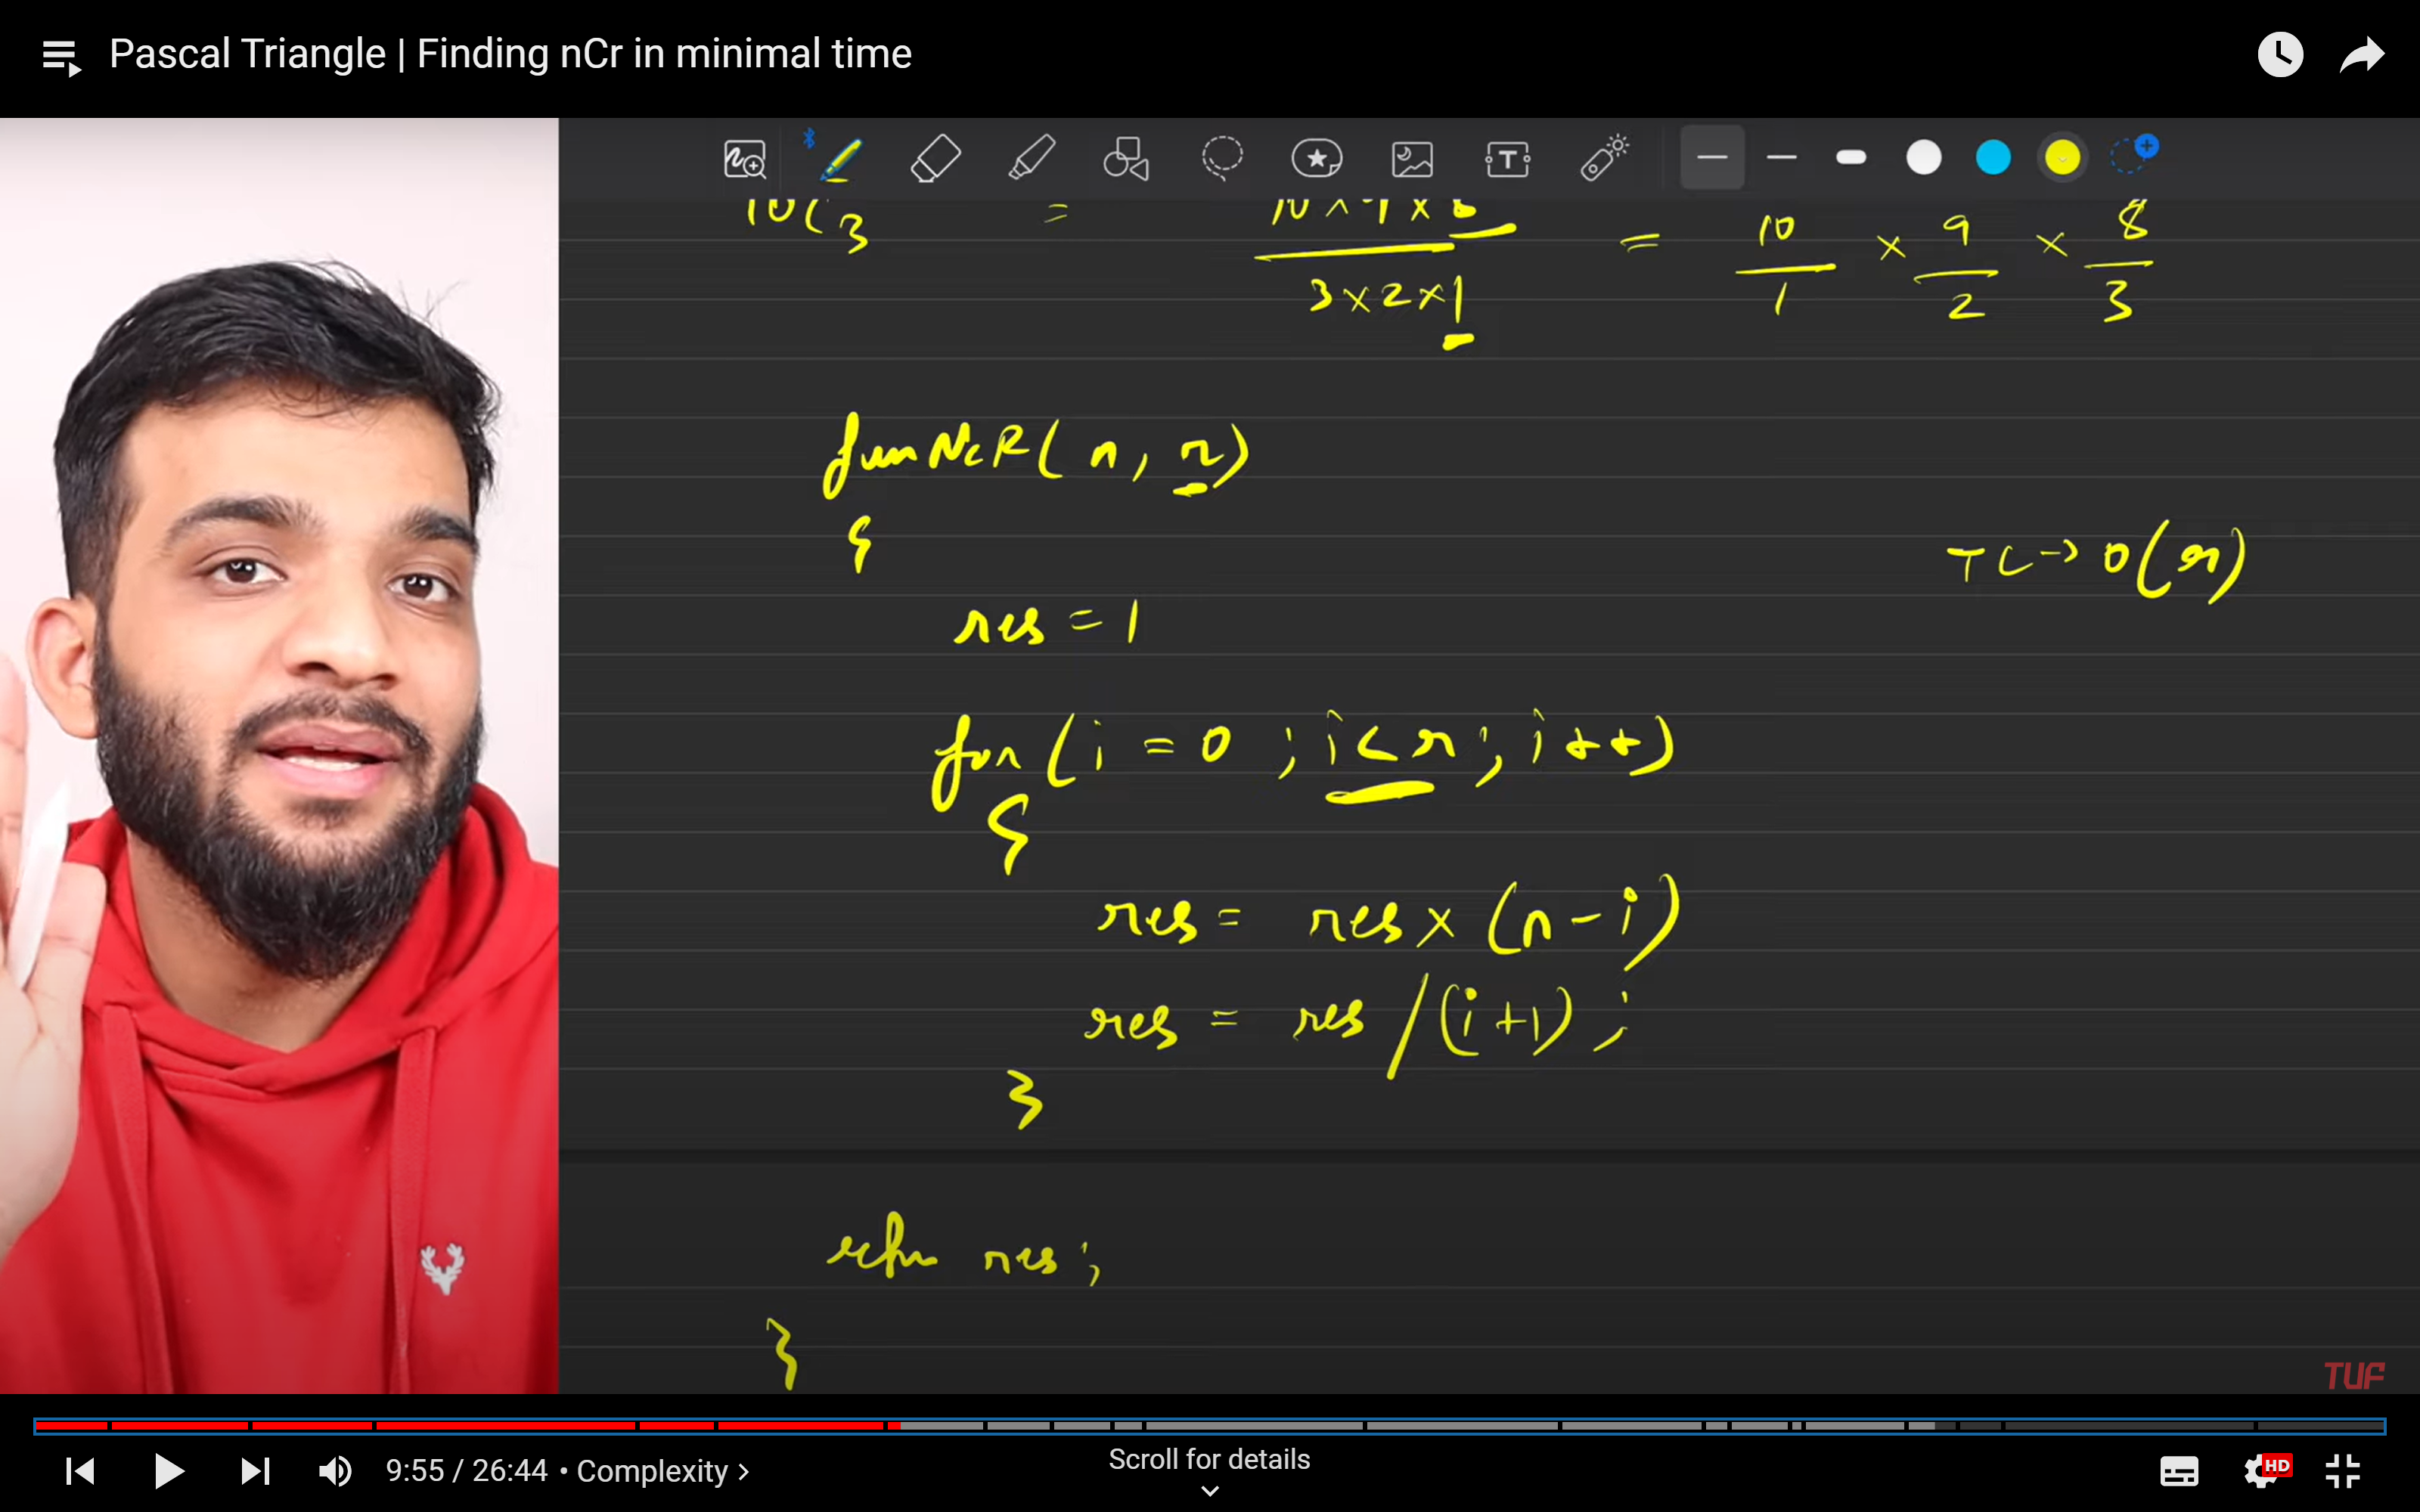 Pascal Triangle | Finding nCr in minimal time
10C3 = 10 × 9 × 8 / 3 × 2 × 1 = 10/1 × 9/2 × 8/3
funNcR( n, r)
{
TC → O(r)
res = 1
for( i = 0 ; i < r ; i++)
{
res = res × (n - i)
res = res / (i + 1) ;
}
return res ;
}
TUF
9:55 / 26:44 • Complexity >
Scroll for details
HD